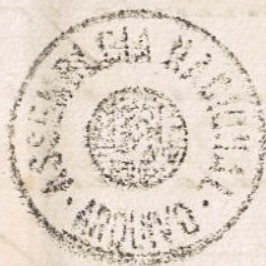 ASSEMBLEIA NACIONAL
· ARQUIVO ·